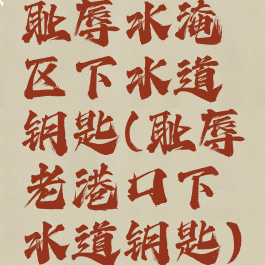 耻辱水淹
区下水道
钥匙(耻辱
老港口下
水道钥匙)